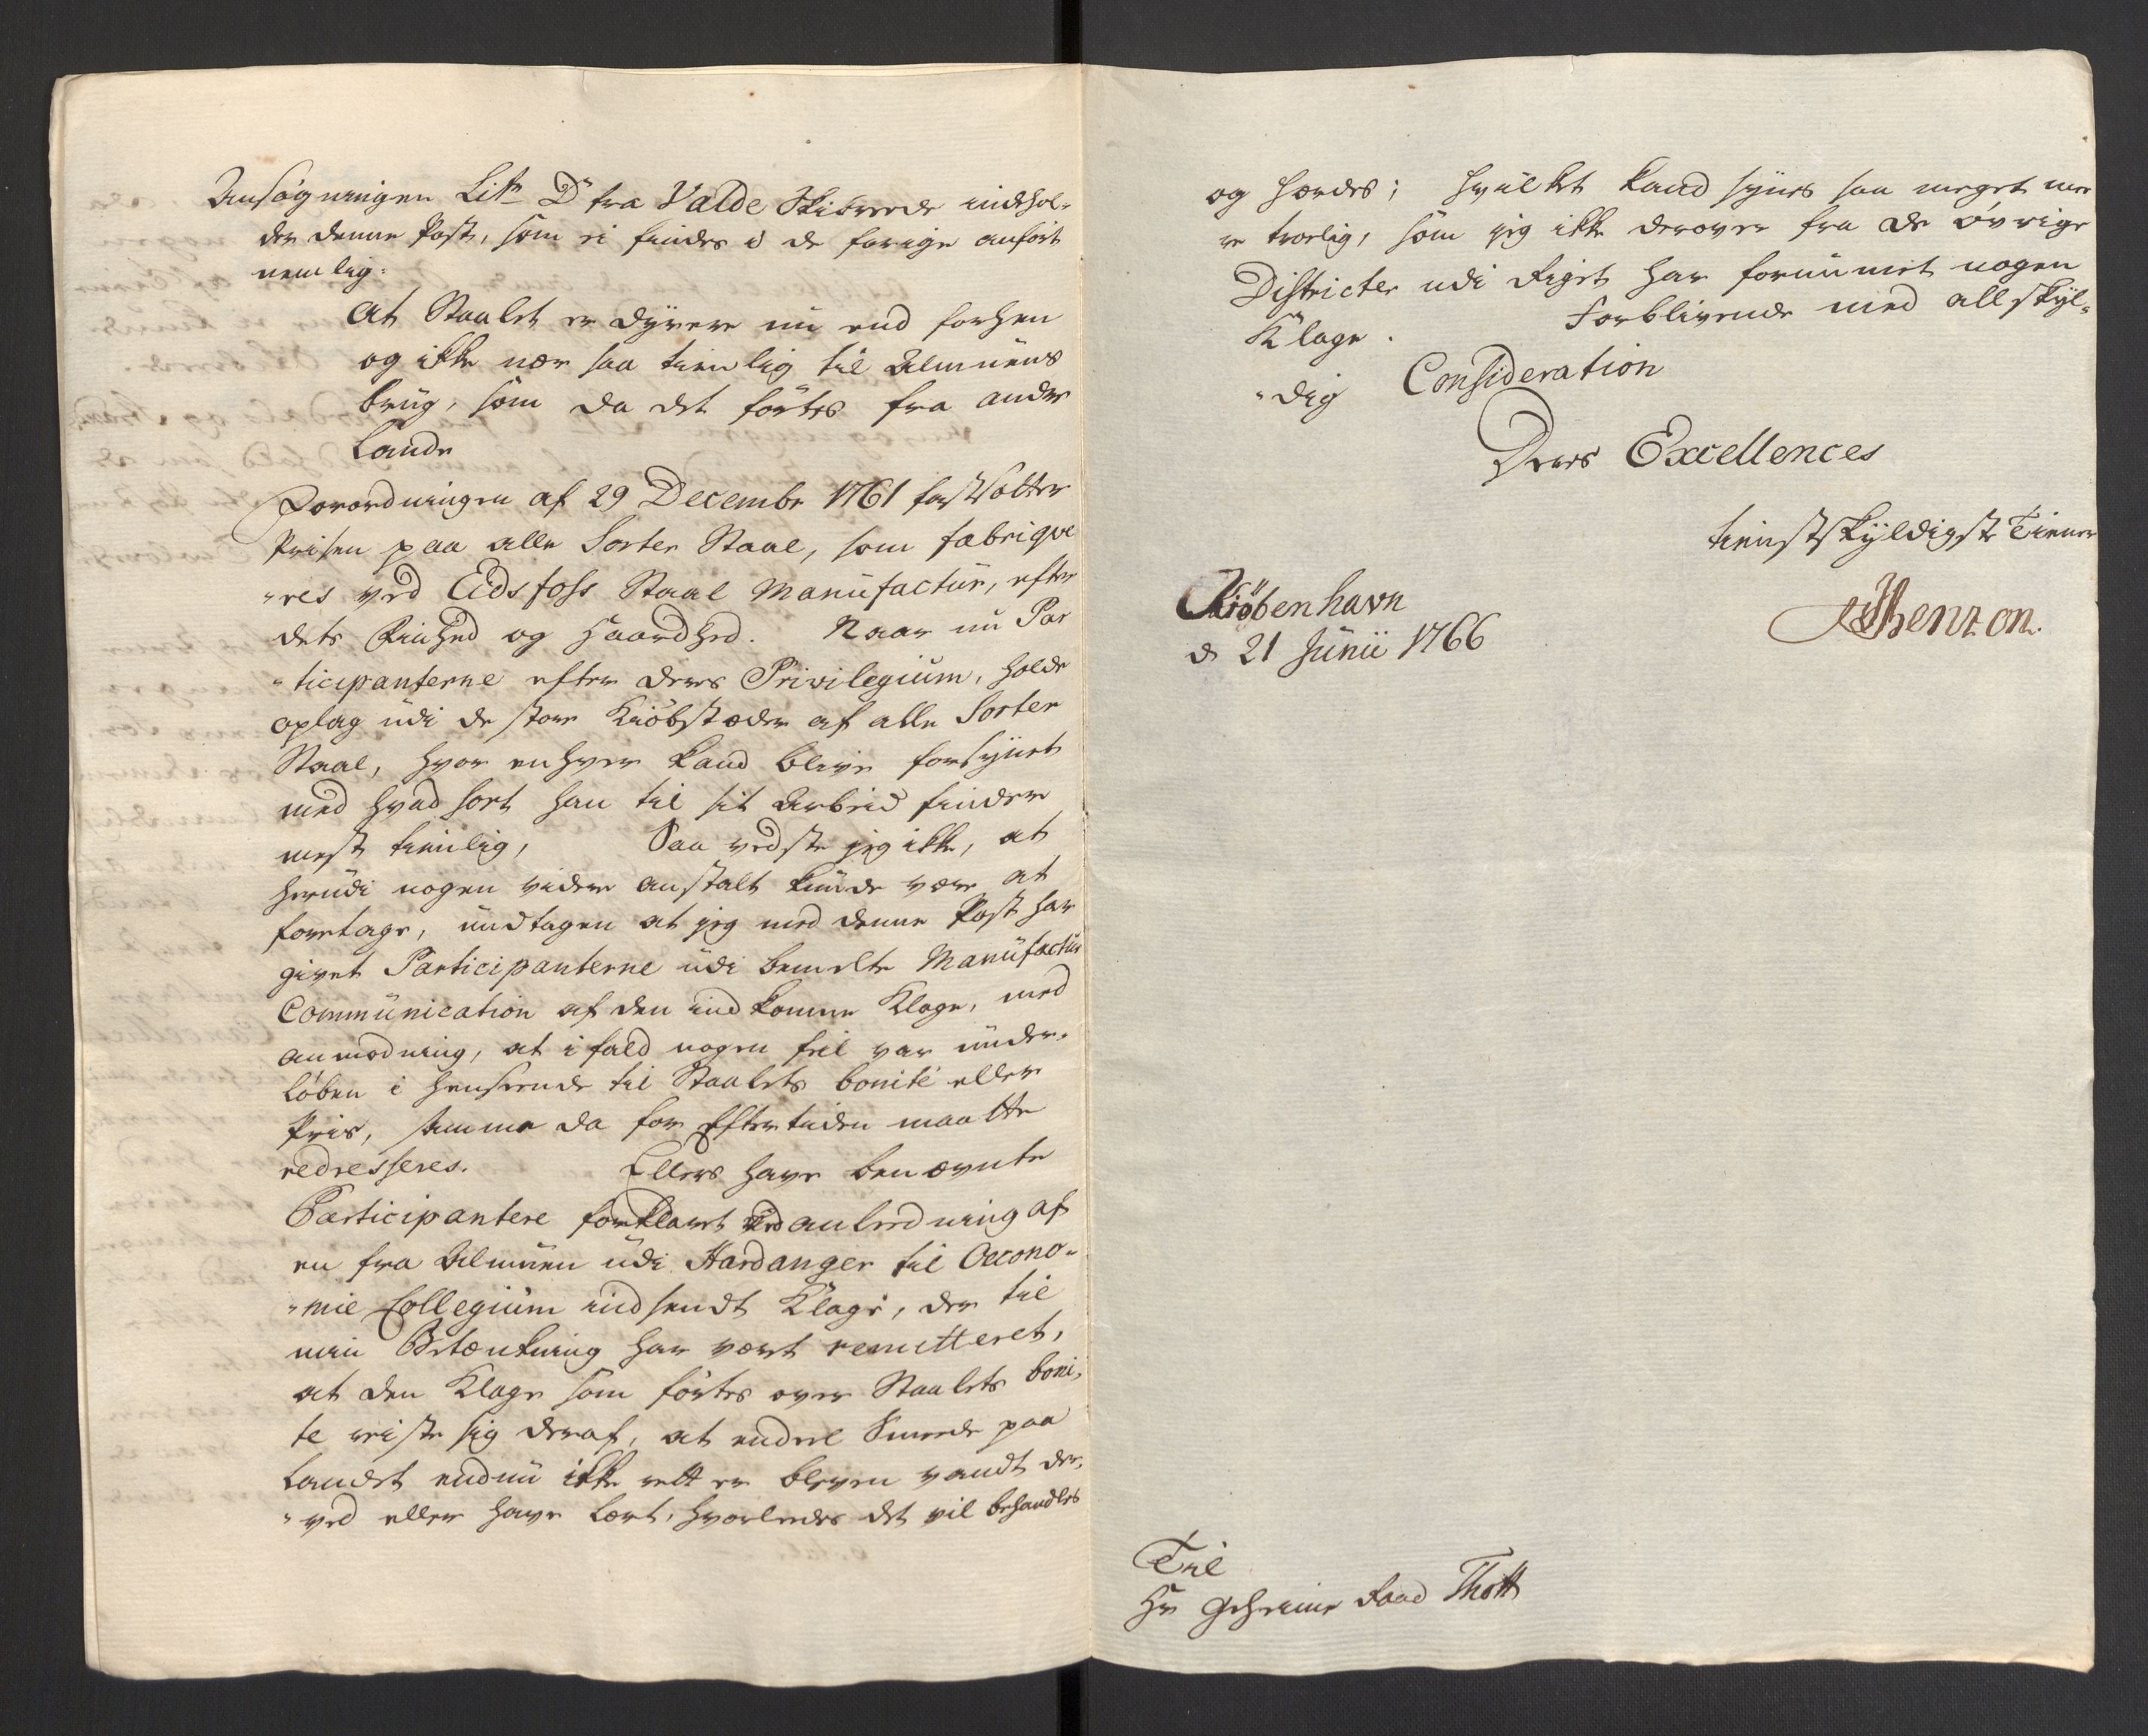 Ansögningen Litr D fra Valde Skibrede indehol-
der denne Post, som ei findes i de forige anfört
nemlig:
at Staalet er dyrere nu end forhen
og ikke nær saa tienlig til Almuens
brug, som da det förtes fra andre
Lande
Forordningen af 29 Decembr 1761 fastsætter
Prisen paa alle Sorter Staal, som fabrique
"res ved Eidsfoss Staal Manufactur, efter
dets Finhed og Haardhed. Naar nu Par
"ticipanterne efter deres Privilegium, holde
oplag udi de store Kiöbstæder af alle Sorter
Staal, hvor enhver kand blive forsynet
med hvad sort han til sit Arbeid finder
mest tienlig, Saa vedste jeg ikke, at
herudi nogen videre anstalt kunde være at
foretage, undtagen at jeg med denne Post har
givet Participanterne udi bemelte Manufactur
Communication af den indkomne Klage, med
anmodning, at i fald nogen feil var under-
løben i henseende til Staalets bonité eller
Pris, samme da for Eftertiden maatte
redresseres. Ellers have benævnte
Participantere forklaret ved anledning af
en fra Almuen udi Hardanger til Oecono-
"mie Collegium indsendt Klage, der til
min Betænkning har været remitteret,
at den Klage som förtes over Staalets boni-
te reiste sig deraf, at endeel Smede paa
Landet endnu ikke rett er bleven vandt der-
"ved eller have lært, hvorledes det vil behandles
og hærdes; hvilket kand synes saa meget me
re troelig, som jeg ikke derover fra de övrige
Districter udi Riget har fornummet nogen
Klage. Forblivende med all skyl-
"dig Consideration
Deres Excellences
tienstskyldigste Tiener
Kiöbenhavn
d 21 Junii 1766
Til
Hr Geheime Raad Thott